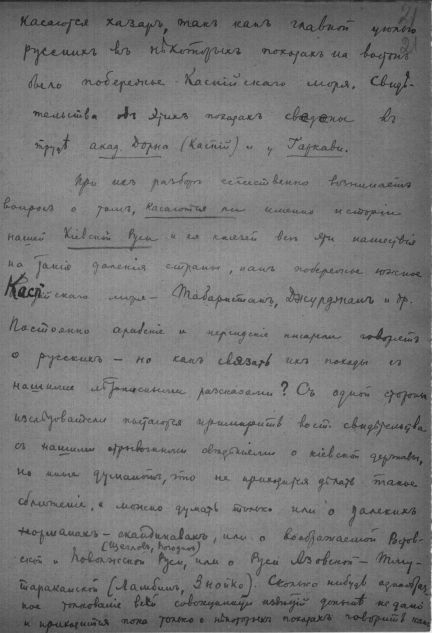 21
21
касаются хазаръ, такъ какъ главной цѣлью
русскихъ въ нѣкоторыхъ походахъ на востокъ
было побережье Каспійскаго моря. Свидѣ-
тельства объ этихъ походахъ сведены въ
трудѣ акад. Дорна (Каспій) и у Гаркави.
При ихъ разборѣ естественно возникаетъ
вопросъ о томъ, касаются ли именно исторіи
нашей Кіевской Руси и ея князей всѣ эти нашествія
на такія далекія страны, какъ побережье южное
Каспійскаго моря – Табаристанъ, Джурджанъ и др.
Постоянно арабскіе и персидскіе писатели говорятъ
о русскихъ – но какъ связать ихъ походы съ
нашими лѣтописными разсказами? Съ одной стороны
изслѣдователи пытаются примирить вост. свидѣтельства
съ нашими отрывочными свѣдѣніями о кіевской державѣ,
но иные думаютъ, что не приходится дѣлать такое
сближеніе, а можно думать только или о далекихъ
норманахъ – скандинавахъ, или о воображаемой Ростов-
ской и Поволжской (Щегловъ, Погодинъ) Руси, или о Руси Азовской – Тму-
тараканской (Ламбинъ, Знойко). Сколько нибудь
толкованіе всей совокупности извѣстій донынѣ не дано
и приходится пока только о нѣкоторыхъ походахъ говорить какъ